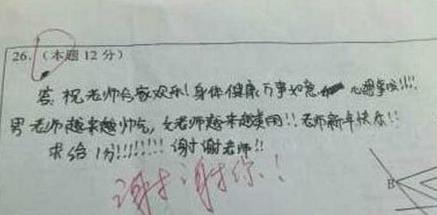 26.（本题12分）
答：祝老师合家欢乐！身体健康 万事如意 心想事成!!!!
男老师越来越帅气，女老师越来越美丽!! 老师新年快乐!!
求给1分!!!!!!!! 谢谢老师!!
谢谢你!!
B